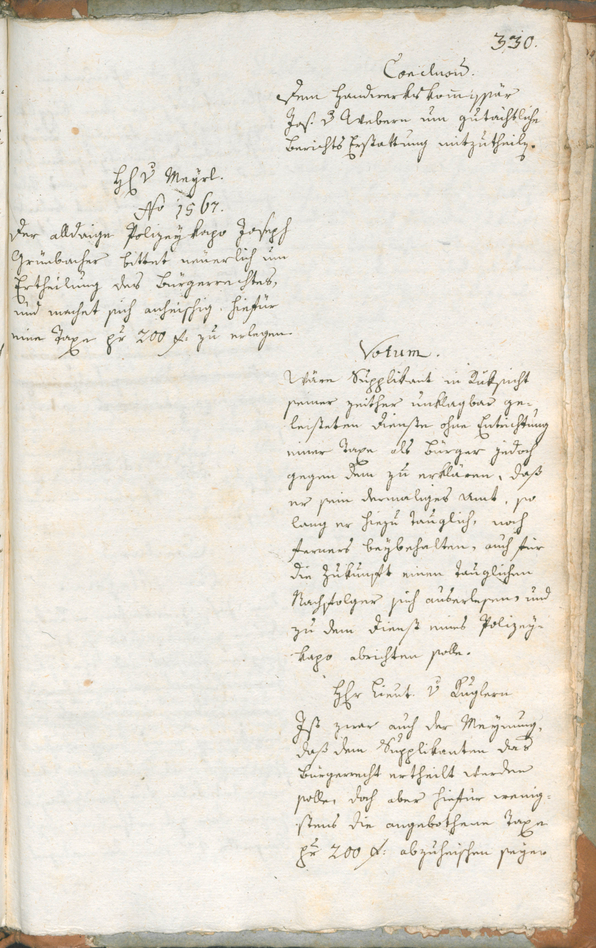 330.
Conclusum.
Dem Handwerkskommissär
Jos. v Webern um gutächtliche
Berichts Erstattung mitzutheilen.
HE v Mayrl.
No 1567.
Der alldaige Polizey kapo Joseph
Grünbacher bittet neuerlich um
Ertheilung des Bürgerrechtes,
und machet sich anheischig, hiefür
eine Taxe pr 200 f. zu erlegen.
Votum.
Wäre Supplikant in Rüksicht
seiner zeither unklagbar ge-
leisteten Dienste ohne Entrichtung
einer Taxe als Bürger jedoch
gegen dem zu erklären, daß
er sein dermaliges Amt, so
lang er hiezu tauglich, noch
ferners beybehalten, auch für
die Zukunft einen tauglichen
Nachfolger sich auserlesen, und
zu dem Dienst eines Polizey-
kapo abrichten solle.
HEr Lieut. v Kuglern
Ist zwar auch der Meynung,
daß dem Supplikanten das
Bürgerrecht ertheilt werden
solle, doch aber hiefür wenig-
stens die angebothene Taxe
pr 200 f. abzuheischen seyn